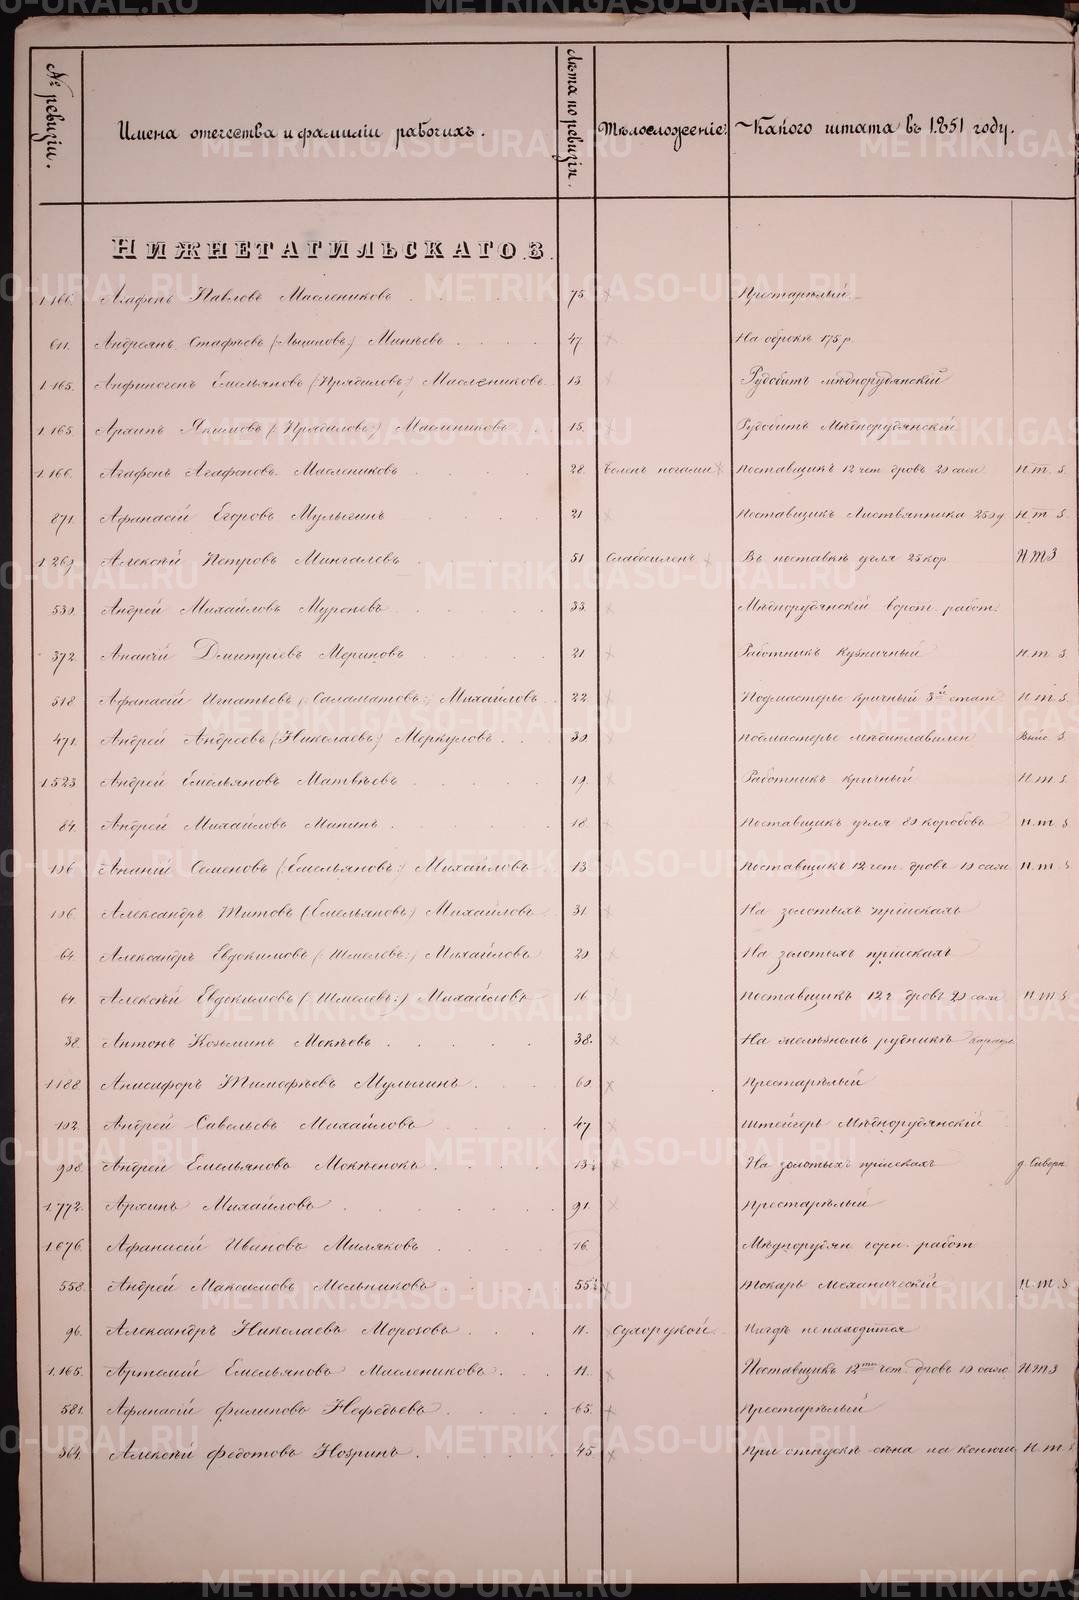 № ревизіи. Имена отечества и фамиліи рабочихъ. Лѣта по ревизіи. Тѣлосложеніе. Какого штата въ 1851 году.
НИЖНЕТАГИЛЬСКАГО З.
1.166. Агафонъ Павловъ Маслениковъ 75. Престарѣлый
611. Андреянъ Стафѣевъ Минѣевъ 47. На оброкѣ 175 р.
1.165. Анфиногенъ Емельяновъ (Прядиловъ) Маслениковъ 13. Рудобитъ мѣднорудянскій
1.165. Архипъ Якимовъ (Прядиловъ) Маслениковъ 15. Рудобитъ Мѣднорудянскій
1.166. Агафонъ Агафоновъ Маслениковъ 28. Боленъ ногами Поставщикъ 12 чет. дровъ 20 саж. Н. Т. З.
871. Афанасій Егоровъ Мулыгинъ 21 Поставщикъ Лиственника Н. Т. З.
1.269. Алексѣй Петровъ Мингалевъ 51 Слабосиленъ Въ поставкѣ угля 25 кор. НТЗ
530. Андрей Михайловъ 33. Мѣднорудянскій ворот. работ.
372. Ананій Дмитріевъ Мериновъ 21 Работникъ Кузничный Н. Т. З.
518 Афанасій Игнатьевъ (Саламатовъ) Михайловъ 22 Подмастерье кричный 3й стат. Н. Т. З.
471. Андрей Андреевъ (Николаевъ) Меркуловъ 30 Подмастерье мѣдиплавилен. Выйс. З.
1.523. Андрей Емельяновъ Матвѣевъ 19. Работникъ кричный Н. Т. З.
84. Андрей Михайловъ Мининъ 18. Поставщикъ угля 80 коробовъ Н. Т. З.
106 Ананій Семеновъ (Емельяновъ) Михайловъ 13 Поставщикъ 12 чет. дровъ 10 саж. Н. Т. З.
106. Александръ Титовъ (Емельяновъ) Михайловъ 31. На золотыхъ пріискахъ
64 Александръ Евдокимовъ (Шмелевъ) Михайловъ 20 На золотыхъ пріискахъ
64. Алексѣй Евдокимовъ (Шмелевъ) Михайловъ 16. Поставщикъ 12 ч. дровъ 20 саж. Н. Т. З
38. Антонъ Козьминъ Мокѣевъ 38. На желѣзномъ рудникѣ Караул.
1188. Анисифоръ Тимофѣевъ Мулыгинъ 60 Престарѣлый
102. Андрей Савельевъ Михайловъ 47 Штейгеръ Мѣднорудянскій
908. Андрей Емельяновъ На золотыхъ пріискахъ
1.772. Архипъ Михайловъ 91. Престарѣлый
1.676. Афанасій Ивановъ Миляковъ 16. Мѣднорудян. горн. работ.
558. Андрей Максимовъ Мельниковъ 55½ Токарь механическій Н. Т. З
96. Александръ Николаевъ Морозовъ 11. Сухорукой Нигдѣ не находится
1.165. Артемій Емельяновъ Маслениковъ 11. Поставщикъ 12ти чет. дровъ 10 саж. НТЗ
581. Афанасій Филиповъ Нефедьевъ 65. Престарѣлый
364. Алексѣй Федотовъ Нозринъ 45 При отпускѣ сѣна на конюш. Н. Т. З